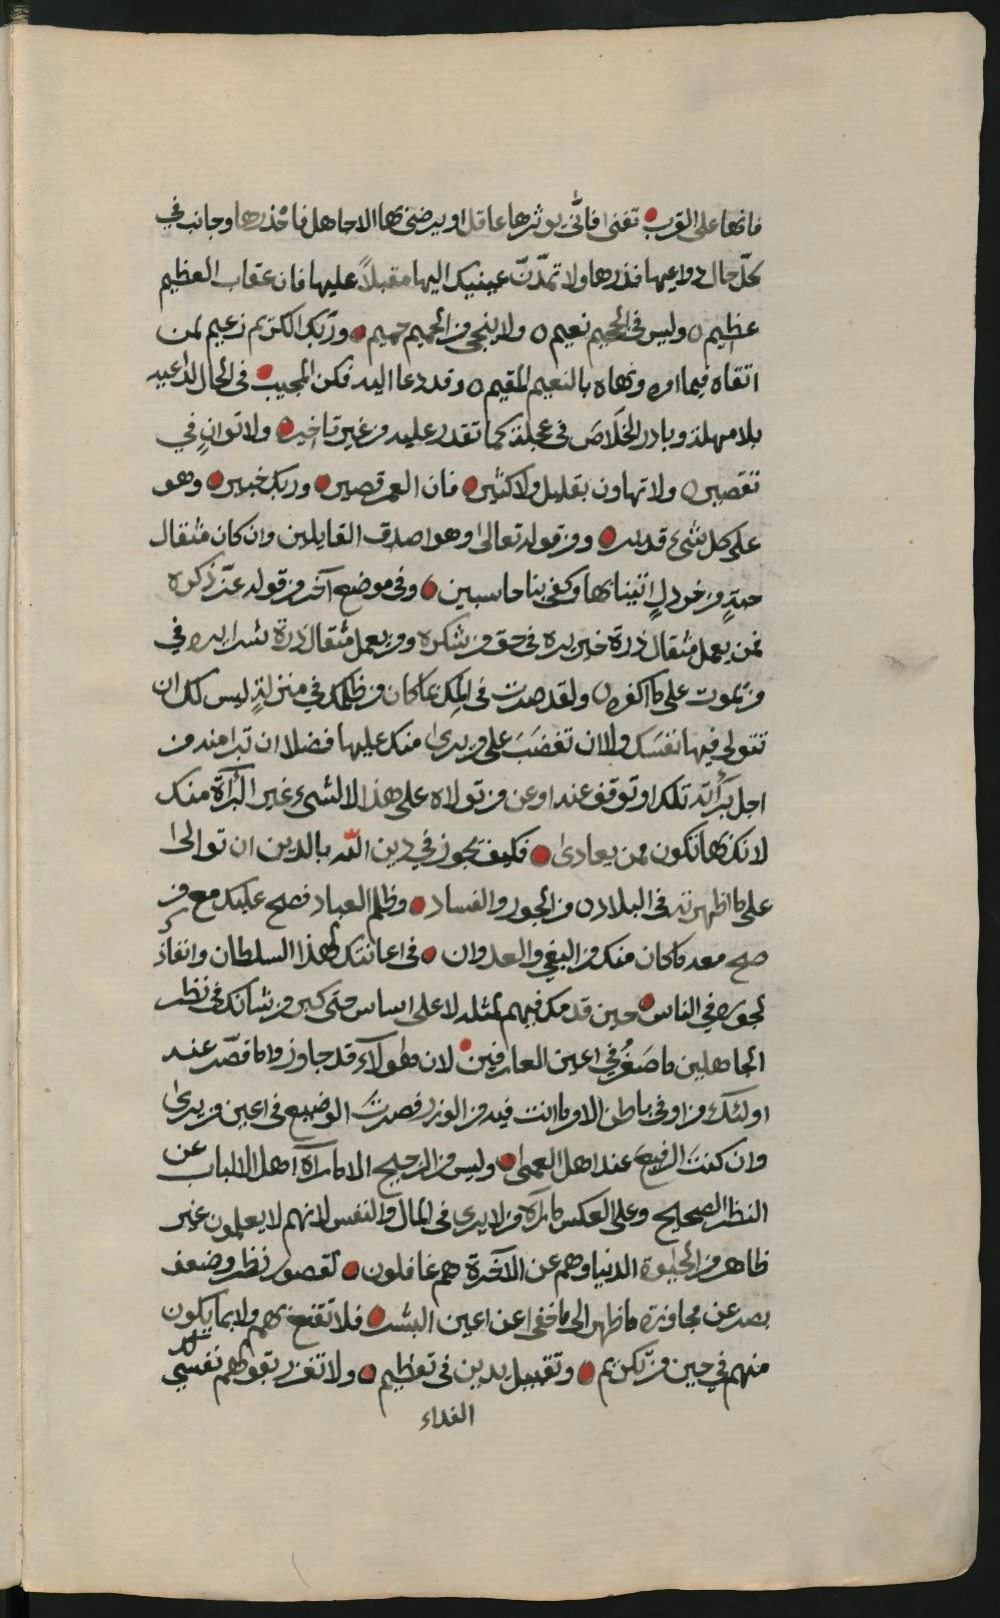 فانها على القرب تفنى افانّى يوثرها عاقل او يرضى بها الا جاهل فاحذرها وجانب في
كلّ حال دواعيها فذرها ولا تمدّنّ عينيك اليها مقبلاً عليها فان عقاب العظيم
عظيم وليس في الجحيم نعيم ولا ينجي من الحميم حميم وربّك الكريم زعيم لمن
اتقاه فيما امره ونهاه بالنعيم المقيم وقد دعا اليه فكن المجيب في الحال لداعيه
بلا مهلة وبادر الخلاصَ في عجلة كما تقدر عليه من غير تاخير ولا توانٍ في
تقصير ولا تهاون بقليل ولا كثير فان العمر قصير وربك خبير وهو
على كل شيء قدير ومن قوله تعالى وهو اصدق القايلين وان كان مثقال
حبةٍ من خردلٍ اتينا بها وكفى بنا حاسبين وفي موضع آخر من قوله عزّ ذكره
فمن يعمل مثقال ذرة خير يره في حق من شكره ومن يعمل مثقال ذرة شرا يره في
من يموت على ما اكفره ولقد صرت في الملك عما كان من ظلمك في منزلةٍ ليس لك ان
تتولى فيها نفسَك ولا ان تغضبَ على من يبرى منك عليها فضلا ان تبرا منه من
اجل برأته تلك او توقف عنه او عن من تولاه على هذا لا لشيء غير البرآة منك
لانك بها تكون ممن يعادى فكيف يجوز في دين اللّه بالدين ان توالى
على ما اظهرته في البلاد من الجور والفساد وظلم العباد فصح عليك مع من
صح معه ما كان منك من البغي والعدوان في اعانتك لهذا السلطان وانفاذك
لجوره في الناس حين قد مكن فيهم لمثله لا على اساس حتى كبر من شانك في نظر
الجاهلين ما صَغُر في اعين العارفين لان هولآء قد جاوزوا ما قصّر عنه
اولئك فراو في باطن الامر ما انت فيه من الوزر فصرتَ الوضيع في اعين من يرى
وان كنتَ الرفيعَ عند اهل العمى وليس من الرجيح الا ما رآه اهل الالباب عن
النظر الصحيح وعلى العكس ما رآه من لا يرى في المال والنفس لانهم لا يعلمون غير
ظاهر من الحيوة الدنيا وهم عن الآخرة هم غافلون لقصور نظر وضعف
بصر عن مجاوزة ما ظهر الى ما خفي عن اعين البشر فلا تقنع بهم ولا بما يكون
منهم في حين من تكريم وتقبيل يدين في تعظيم ولا تغرر بقولهم نفسي لك
الفداء